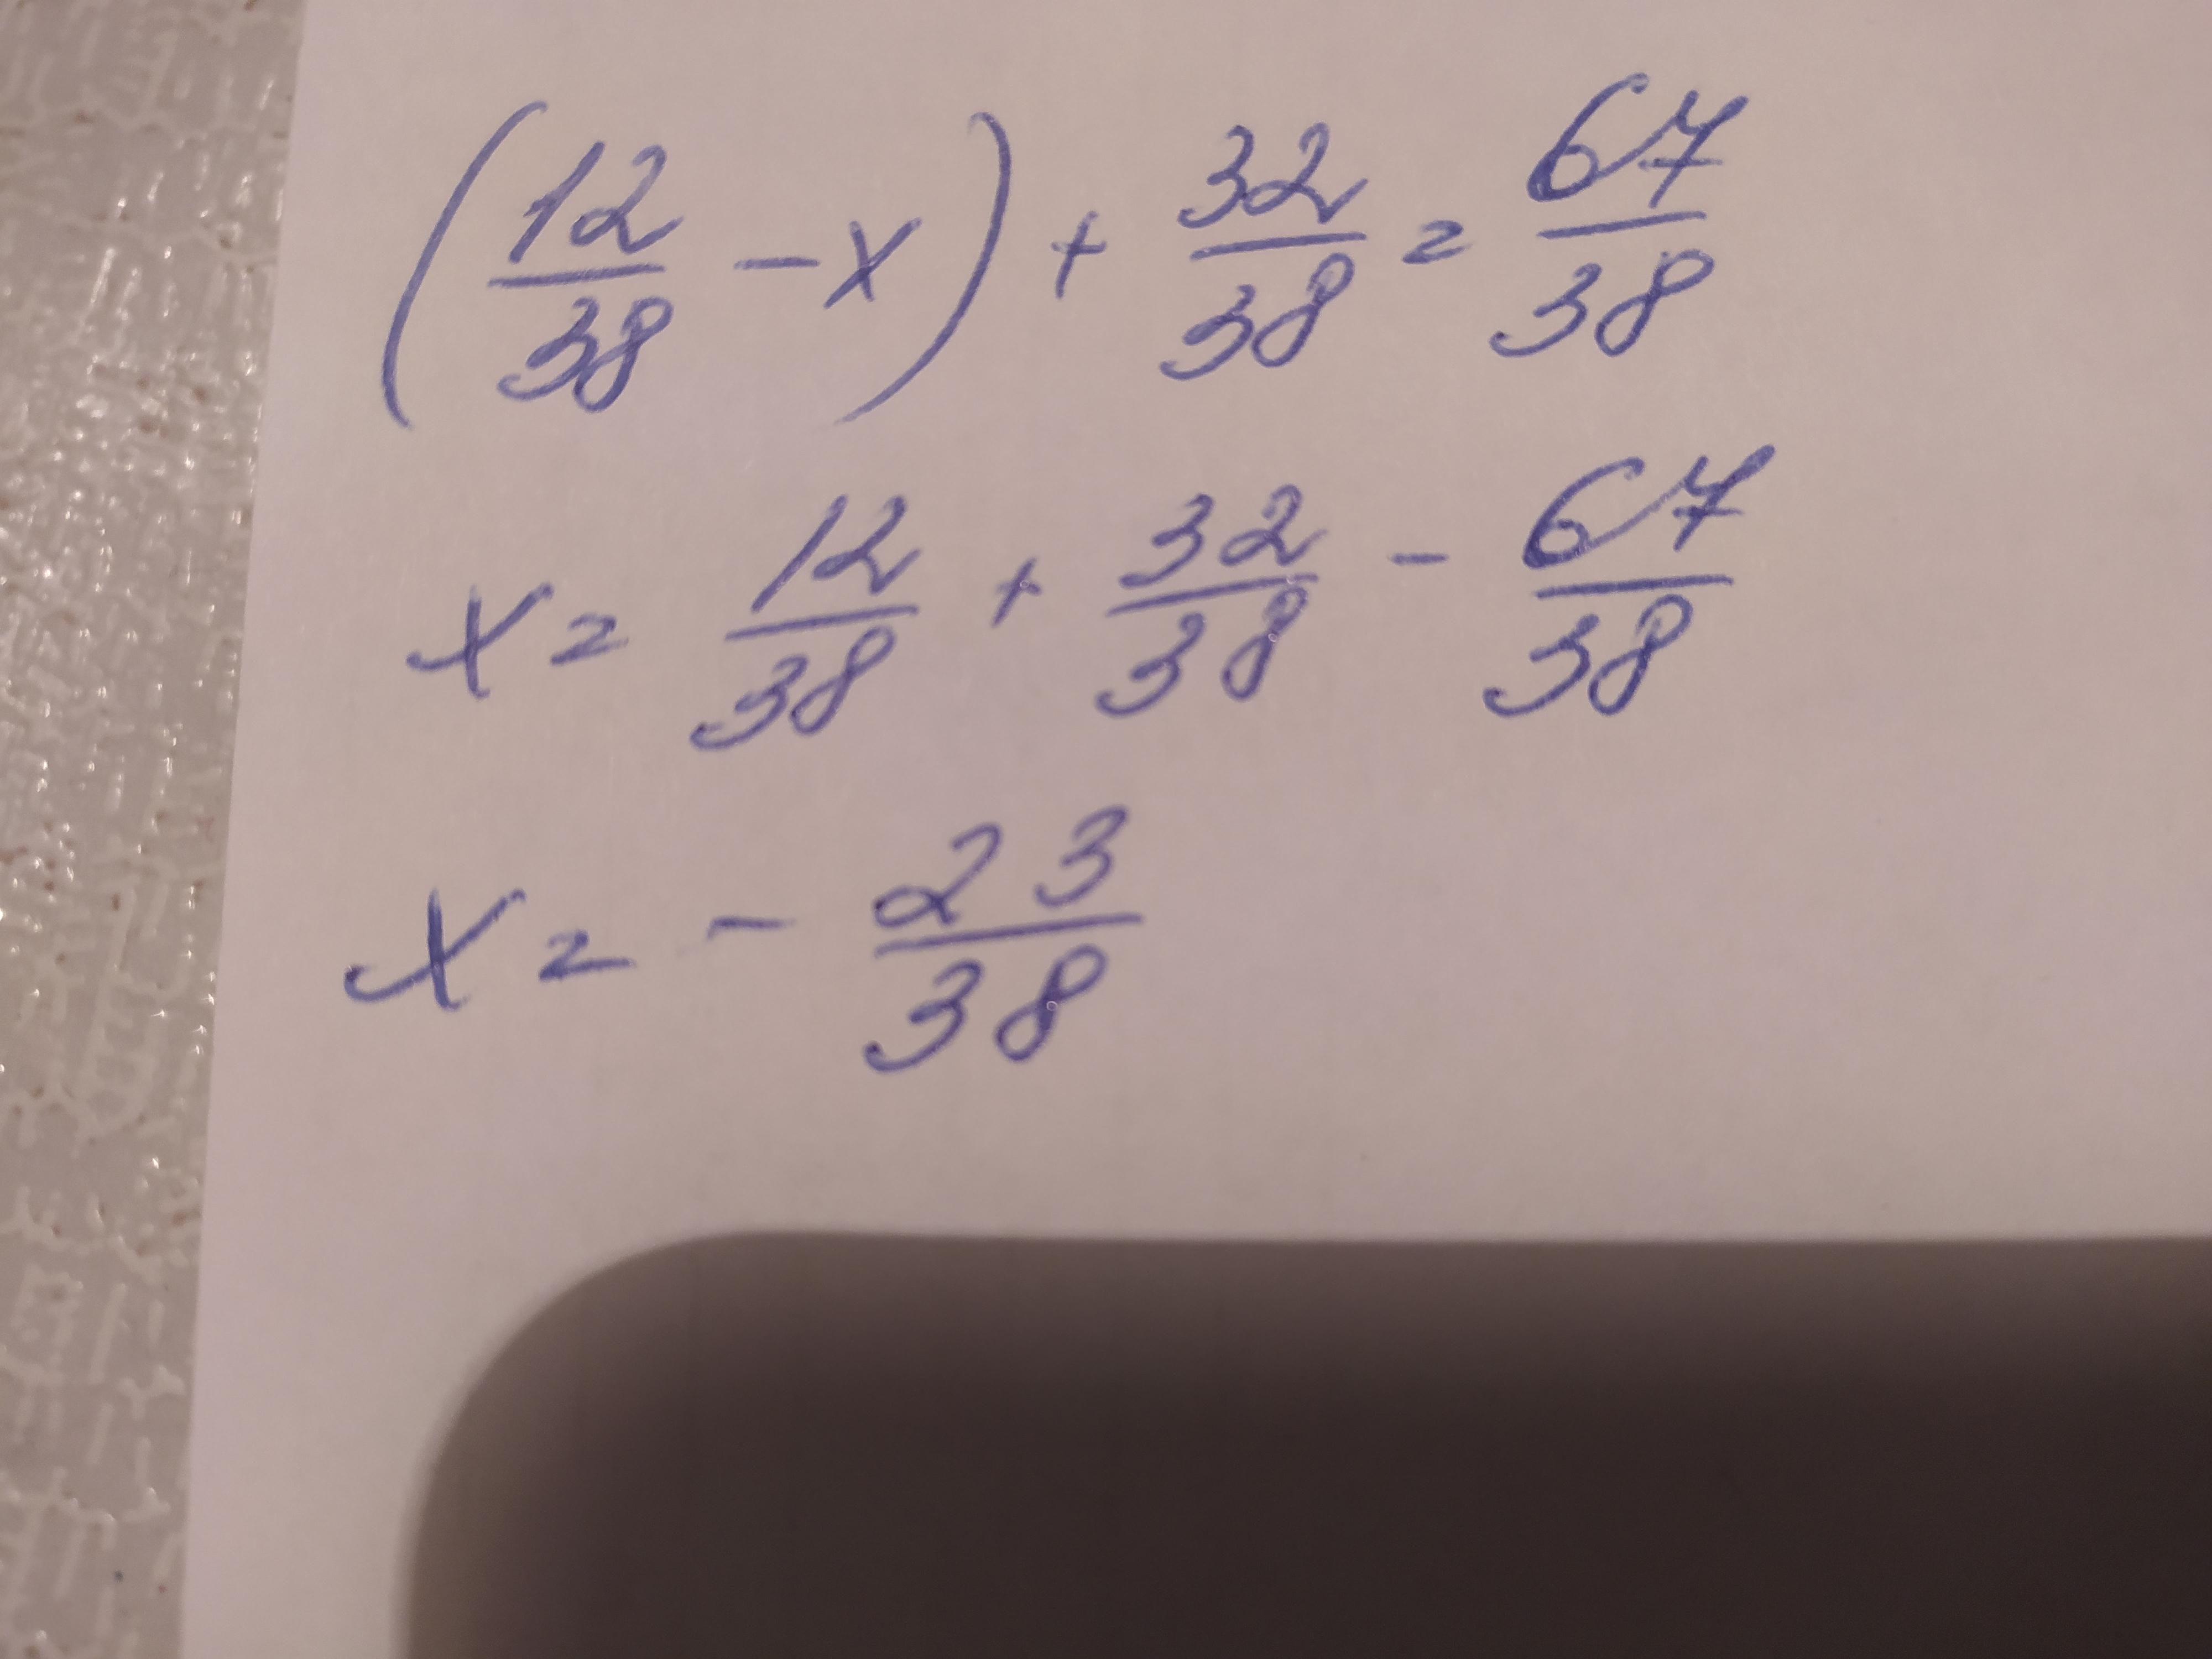 (12/38 - x) + 32/38 = 67/38
x = 12/38 + 32/38 - 67/38
x = - 23/38